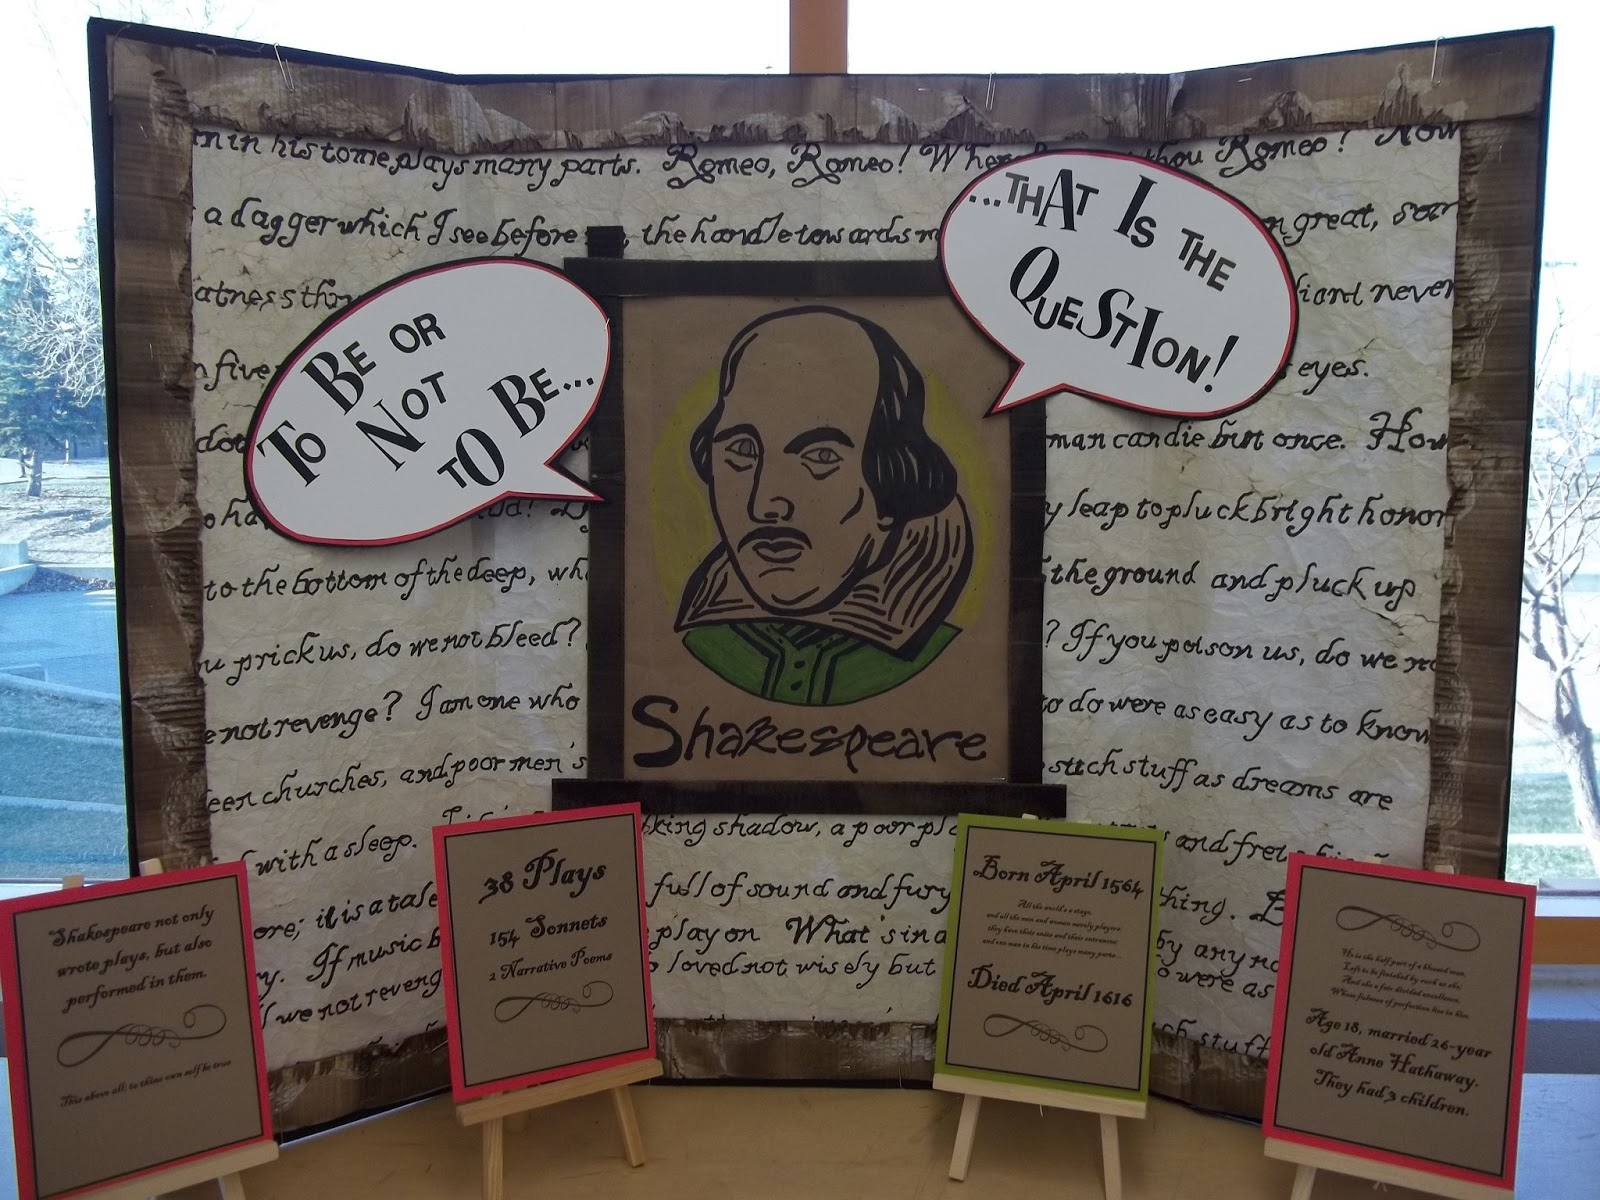 m in his tome, plays many parts. Romeo, Romeo! thou Romeo! Now
a dagger which I see before the handle towards
great,
never
five eyes.
man can die but once. How
leap to pluck bright honor
to the bottom of the deep, the ground and pluck up
prick us, do we not bleed? ? If you poison us, do we
not revenge? I am one who to do were as easy as to know
churches, and poor men's such stuff as dreams are
with a sleep. shadow, a poor and
ore; it is a tale full of sound and fury thing.
If music play on What's in a by any
loved not wisely but were as
we not stuff
TO BE OR
NOT
TO BE...
...THAT IS THE
QUESTION!
Shakespeare
Shakespeare not only
wrote plays, but also
performed in them.
This above all: to thine own self be true
38 Plays
154 Sonnets
2 Narrative Poems
Born April 1564
All the world's a stage,
and all the men and women merely players:
they have their exits and their entrances;
and one man in his time plays many parts...
Died April 1616
He is the half part of a blessed man,
Left to be finished by such as she;
And she a fair divided excellence,
Whose fulness of perfection lies in him.
Age 18, married 26-year
old Anne Hathaway.
They had 3 children.